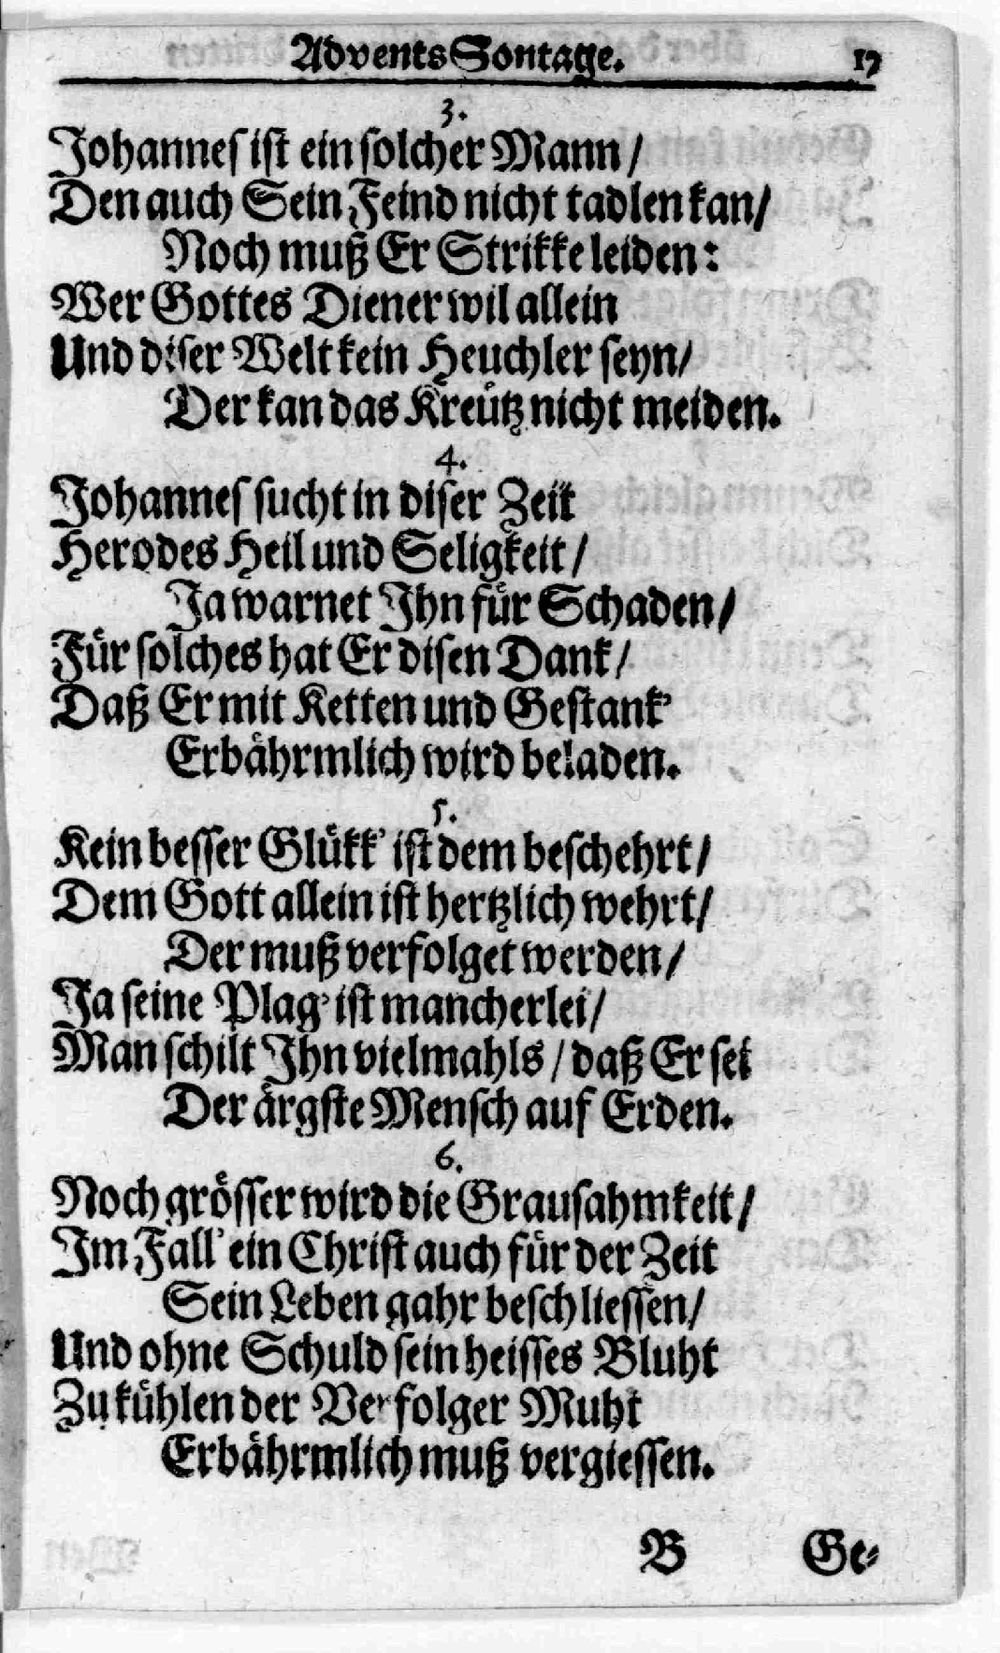 Advents Sontage. 17
3.
Johannes ist ein solcher Mann /
Den auch Sein Feind nicht tadlen kan /
Noch muß Er Strikke leiden:
Wer Gottes Diener wil allein
Und diser Welt kein Heuchler seyn /
Der kan das Kreütz nicht meiden.
4.
Johannes sucht in diser Zeit
Herodes Heil und Seligkeit /
Ja warnet Ihn für Schaden /
Für solches hat Er disen Dank /
Daß Er mit Ketten und Gestank'
Erbährmlich wird beladen.
5.
Kein besser Glükk' ist dem beschehrt /
Dem Gott allein ist hertzlich wehrt /
Der muß verfolget werden /
Ja seine Plag' ist mancherlei /
Man schilt Ihn vielmahls / daß Er sei
Der ärgste Mensch auf Erden.
6.
Noch grösser wird die Grausahmkeit /
Im Fall' ein Christ auch für der Zeit
Sein Leben gahr beschliessen /
Und ohne Schuld sein heisses Bluht
Zu kühlen der Verfolger Muht
Erbährmlich muß vergiessen.
B Ge-